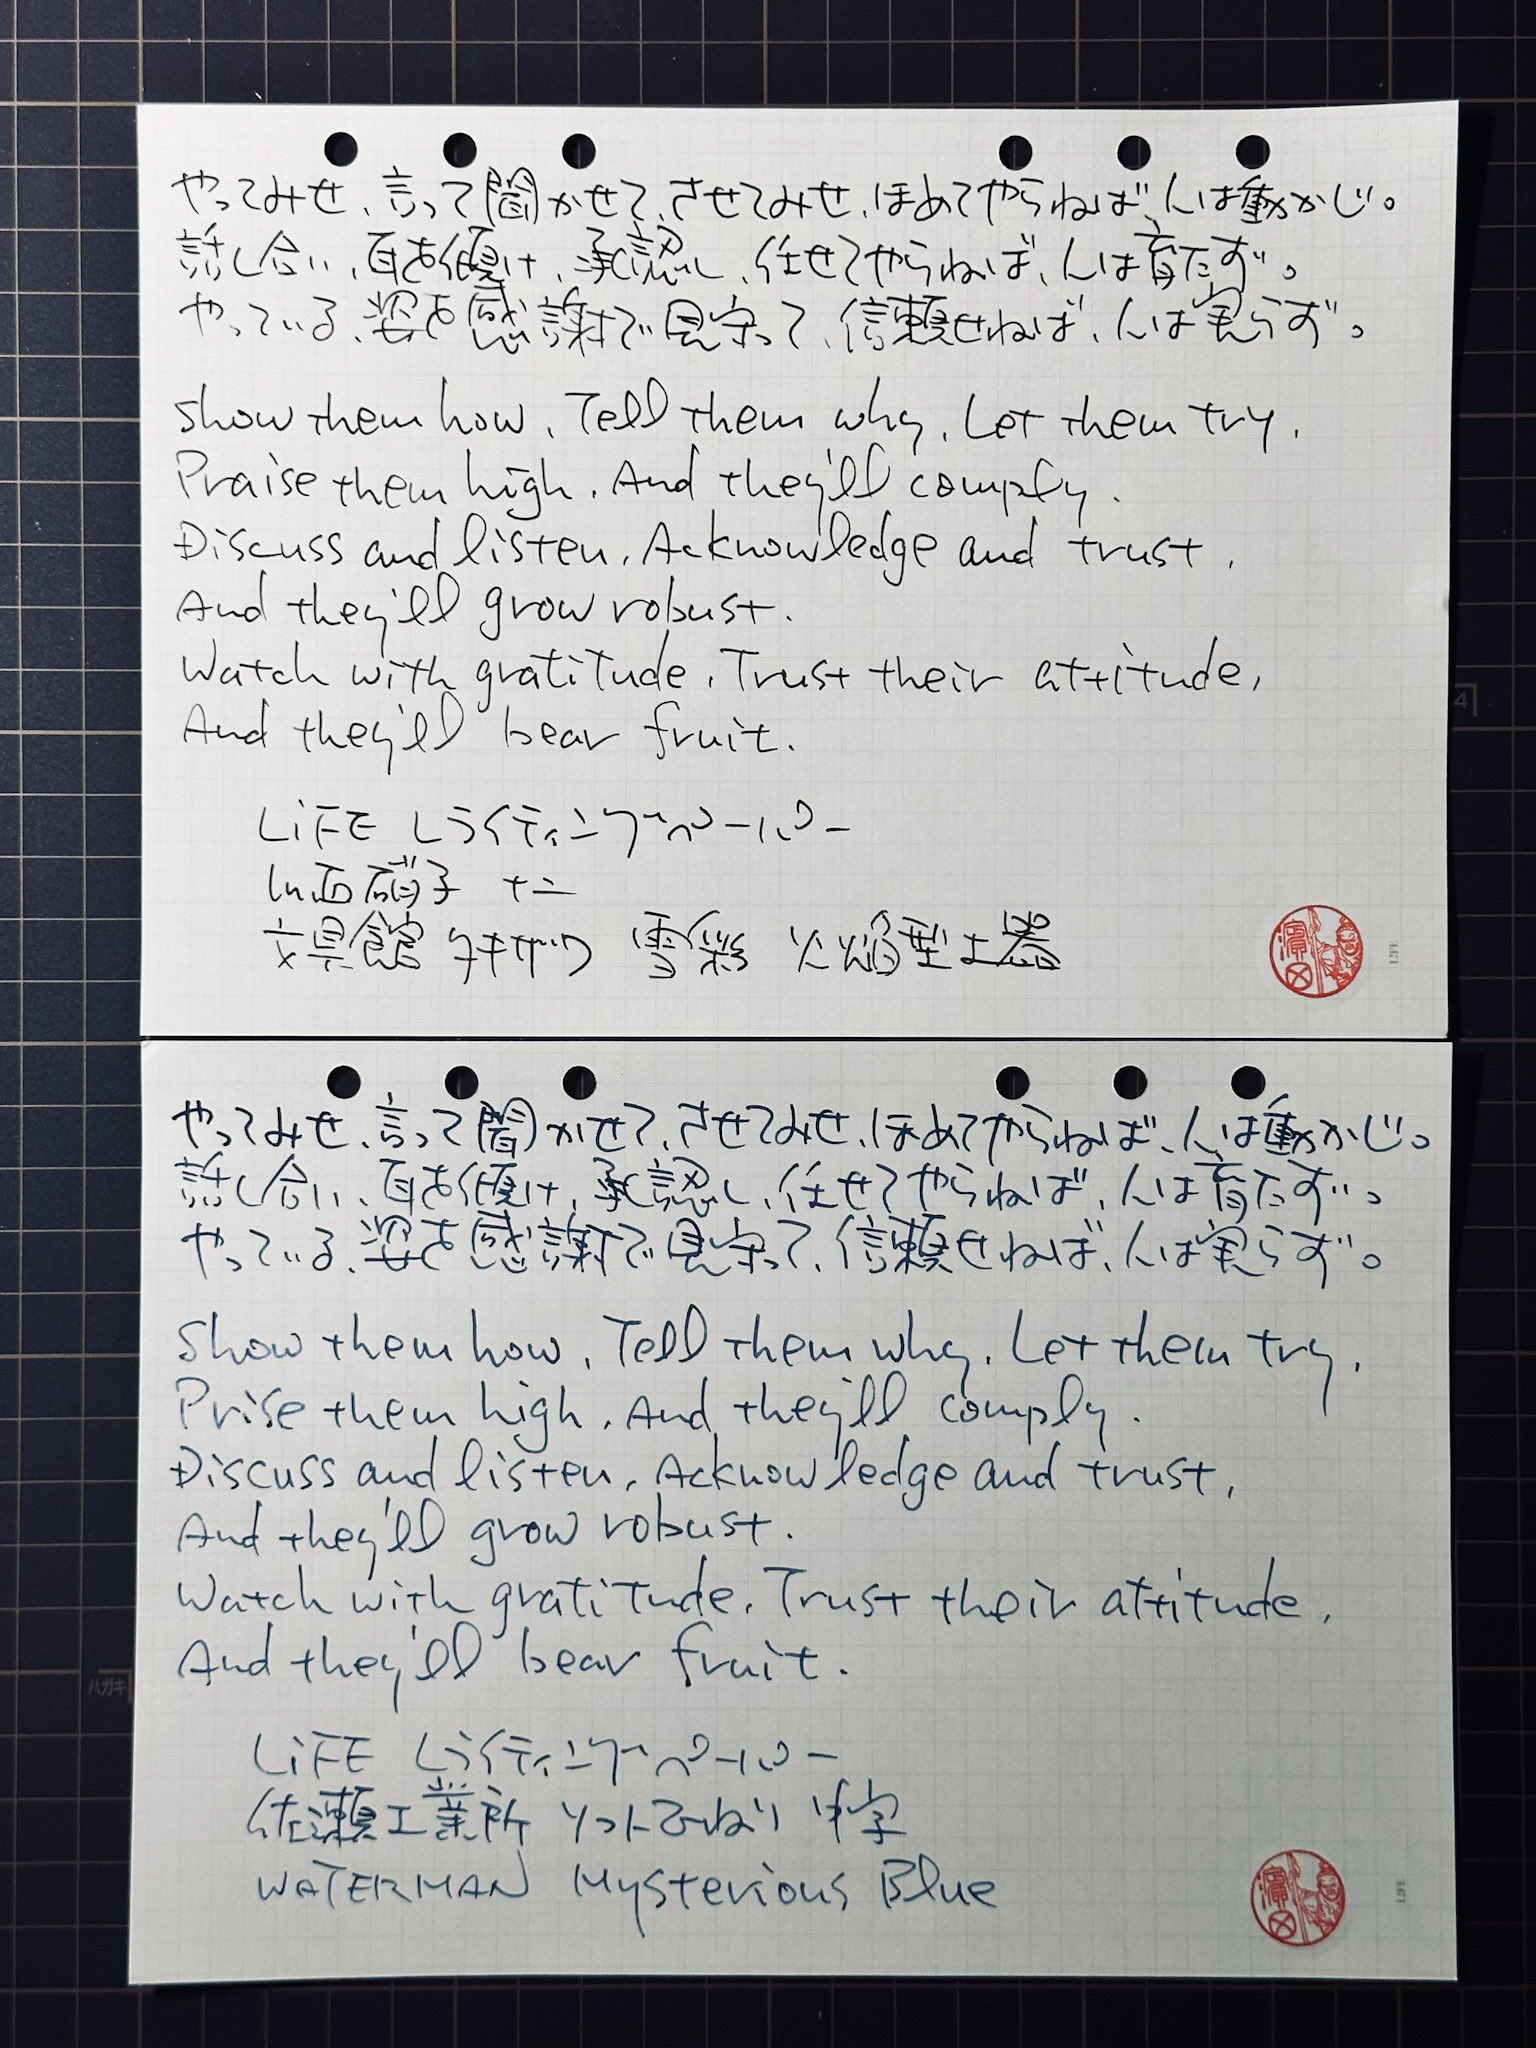 やってみせ、言って聞かせて、させてみせ、ほめてやらねば、人は動かじ。
話し合い、耳を傾け、承認し、任せてやらねば、人は育たず。
やっている、姿を感謝で見守って、信頼せねば、人は実らず。
Show them how, Tell them why, Let them try,
Praise them high, And they'll comply.
Discuss and listen, Acknowledge and trust,
And they'll grow robust.
Watch with gratitude, Trust their attitude,
And they'll bear fruit.
LiFE Lライティングペーパー
硝子 十二
文具館 タキザワ 雪彩 火焔型土器
LIFE
4
やってみせ、言って聞かせて、させてみせ、ほめてやらねば、人は動かじ。
話し合い、耳を傾け、承認し、任せてやらねば、人は育たず。
やっている、姿を感謝で見守って、信頼せねば、人は実らず。
Show them how, Tell them why, Let them try,
Prise them high, And they'll comply.
Discuss and listen, Acknowledge and trust,
And they'll grow robust.
Watch with gratitude, Trust their attitude,
And they'll bear fruit.
ハガキ
LiFE Lライティングペーパー
佐瀬工業所 ソフトひねり 中字
WATERMAN Mysterious Blue
LIFE